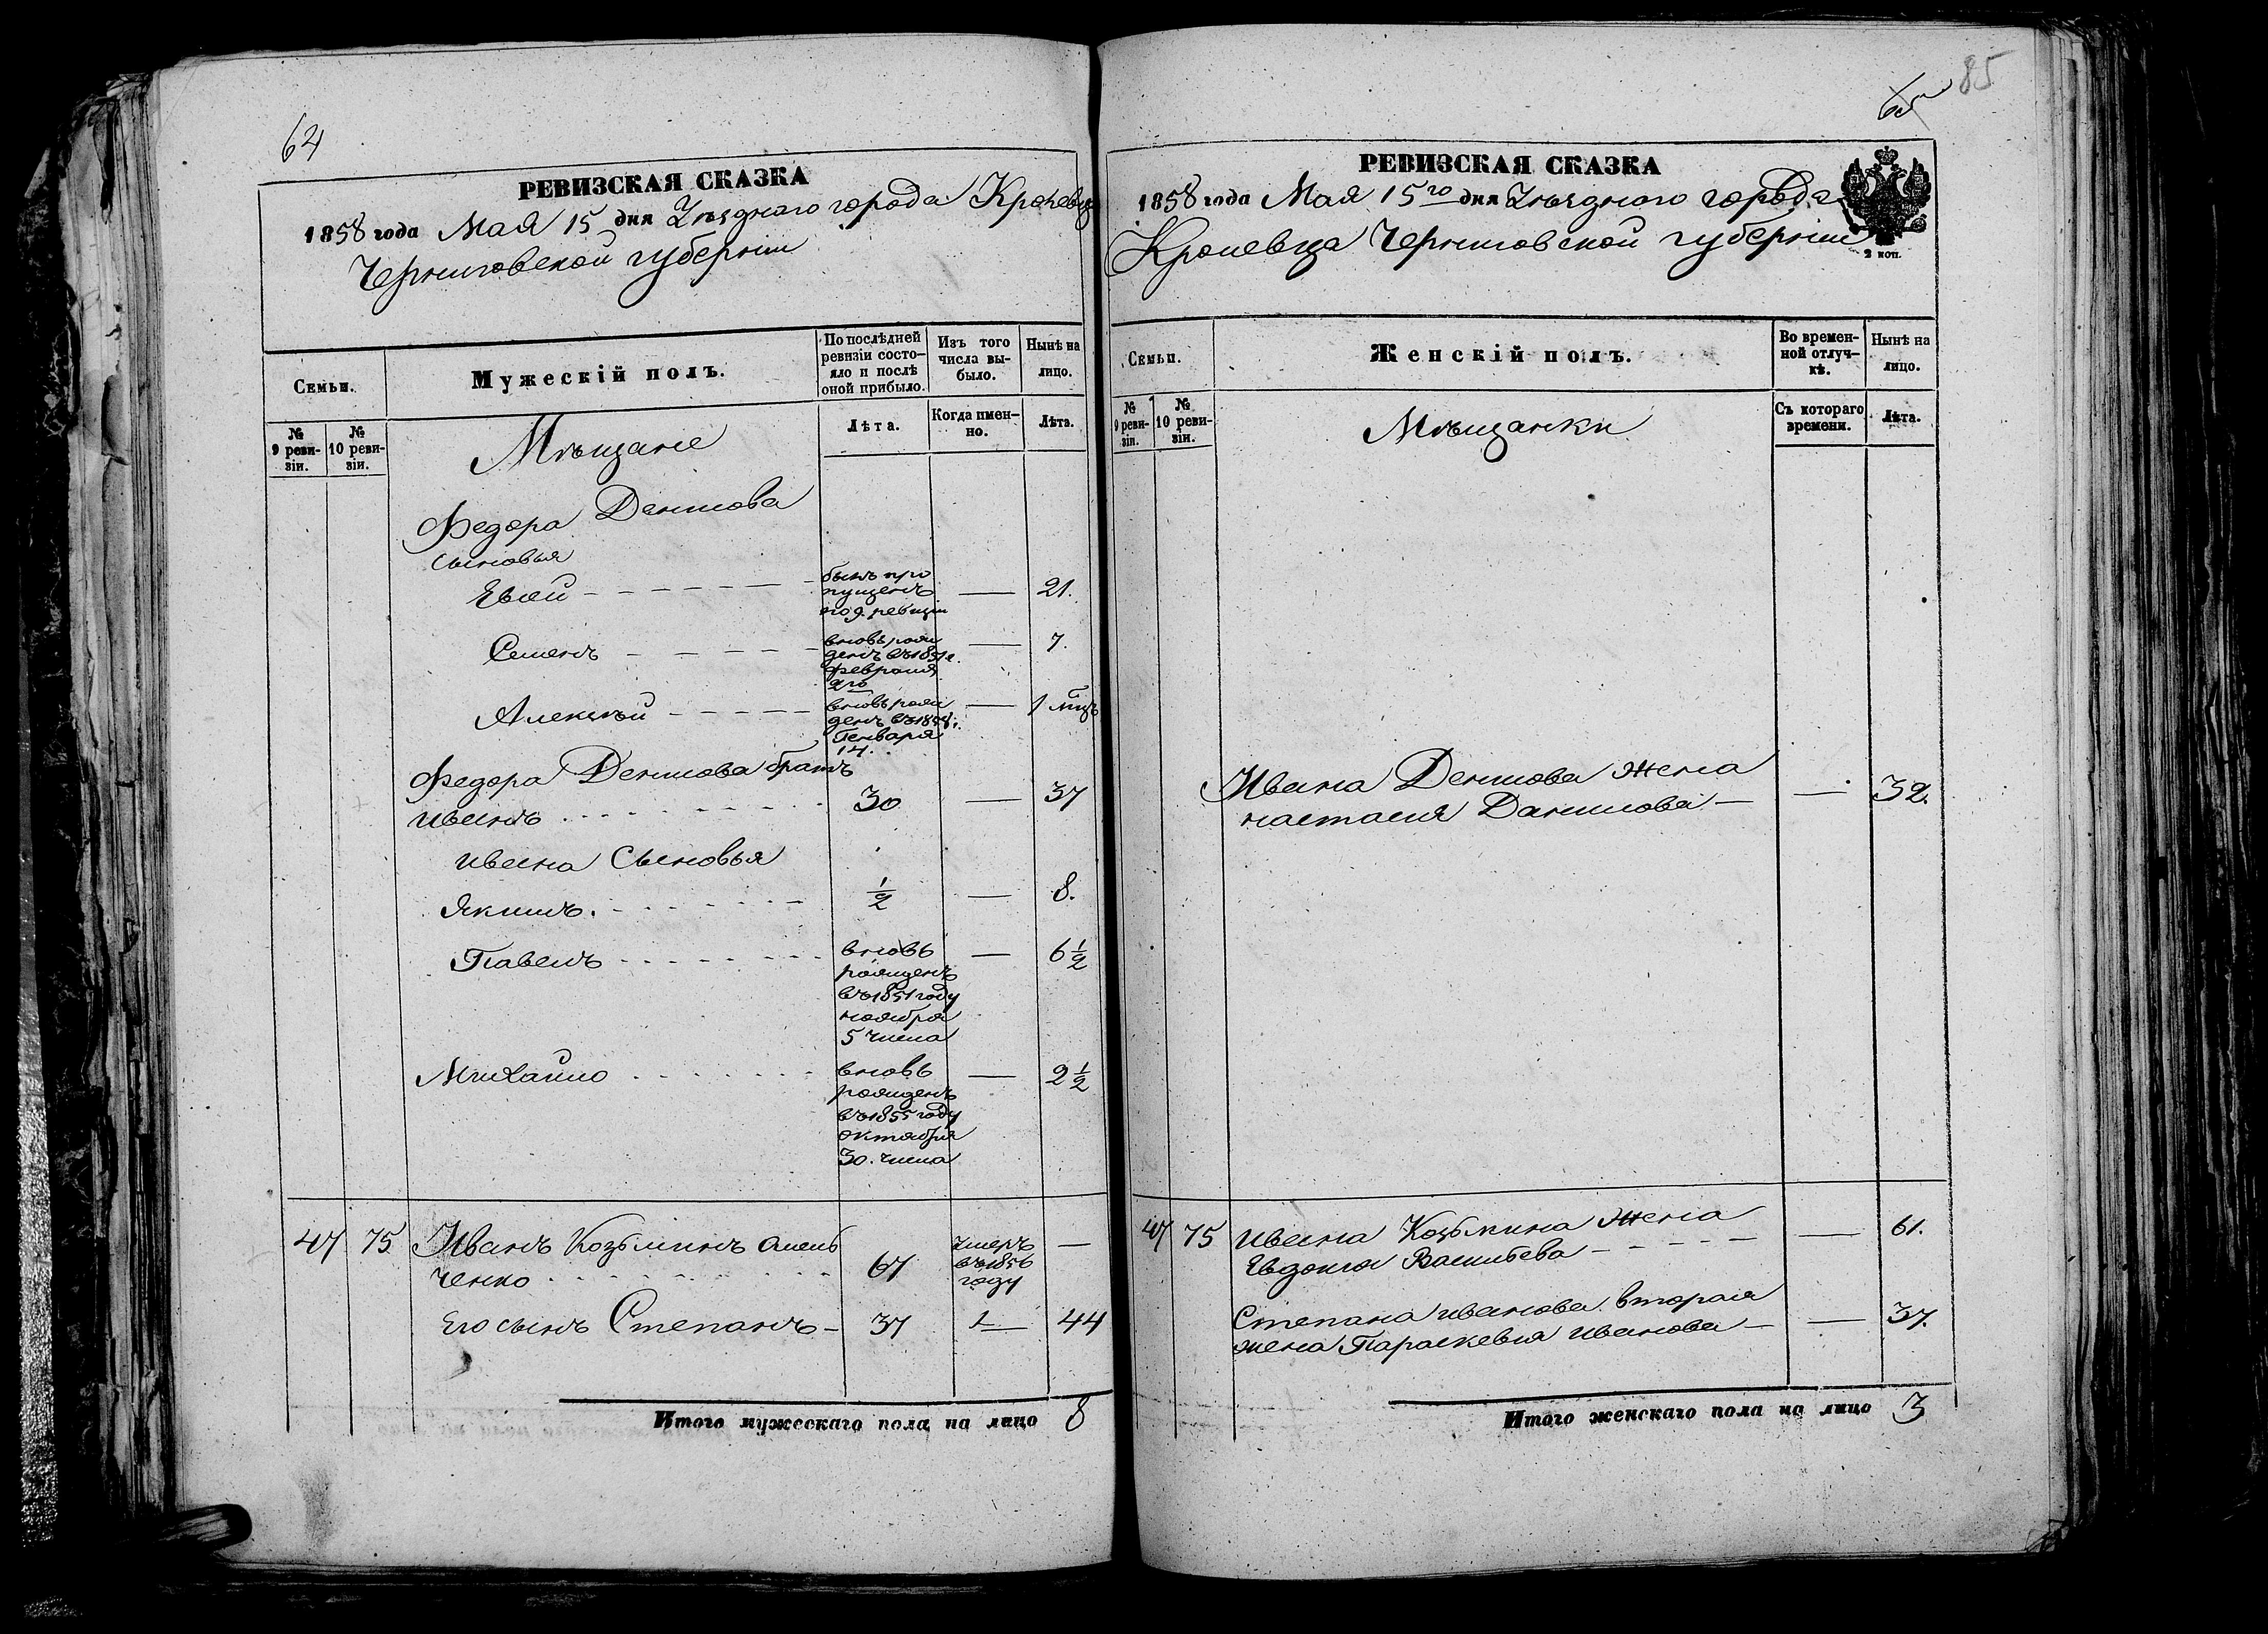 64
РЕВИЗСКАЯ СКАЗКА
1858 года Мая 15 дня Уѣзднаго города Кролевца
Черниговской губерніи
Семьи.
Мужескій полъ.
По послѣдней ревизіи состо-
яло и послѣ
оной прибыло.
Изъ того
числа вы-
было.
Нынѣ на
лицо.
№
9 реви-
зіи.
№
10 реви-
зіи.
Лѣта.
Когда имен-
но.
Лѣта.
Мѣщане
Федора Денисова
сыновья
былъ про
пущенъ
по 9. ревизіи
— 21.
Семенъ
вновь рож
денъ въ 1851 г.
февраля
2го
— 7.
Алексѣй
вновь рож
денъ въ 1858 г.
Генваря
14.
— 1 мцъ
Федора Денисова братъ
Иванъ 30 — 37
Ивана Сыновья
Якимъ. ½ — 8.
Павелъ
вновь
рожденъ
въ 1851 году
ноября
5 числа
— 6 ½
Михайло
вновь
рожденъ
въ 1855 году
октября
30. числа
— 2 ½
47 75 Иванъ Козьминъ
ченко 67
умеръ
въ 1856
году
—
Его сынъ Степанъ 37 — 44
Итого мужескаго пола на лицо 8
65
85
РЕВИЗСКАЯ СКАЗКА
1858 года Мая 15го дня Уѣзднаго города
Кролевца Черниговской губерніи
2 коп.
Семьи.
Женскій полъ.
Во времен-
ной отлуч-
кѣ.
Нынѣ на
лицо.
№
9 реви-
зіи.
№
10 реви-
зіи.
Съ котораго
времени.
Лѣта.
Мѣщанки
Ивана Денисова жена
настасия Данилова — — 32.
47 75 Ивана Козьмина жена
Евдокия Васильева — 61.
Степана Иванова вторая
жена Параскевия Иванова — — 37.
Итого женскаго пола на лицо 3